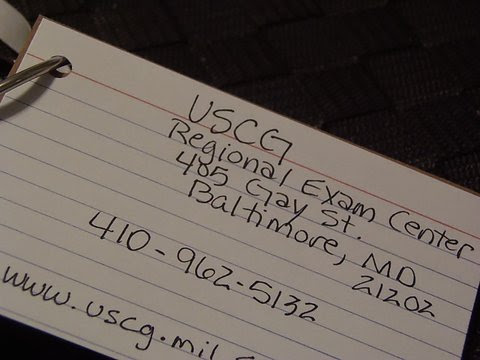 USCG
Regional Exam Center
405 Gay St.
Baltimore, MD
21202
410-962-5132
www.uscg.mil